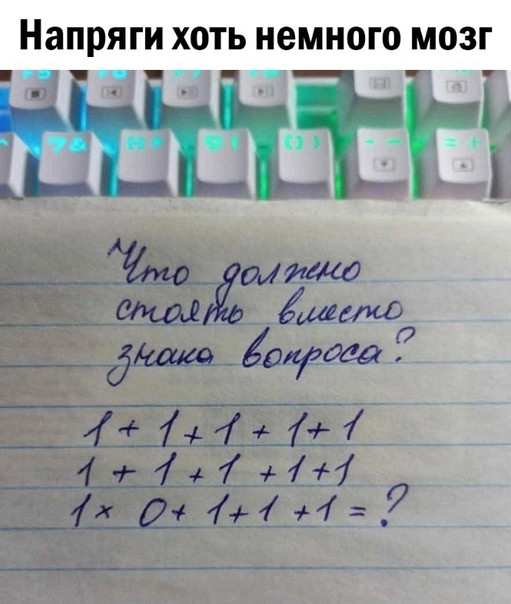 Напряги хоть немного мозг
F5 F6 F7 F8
7& 8* 9( 0) - - = +
Что должно
стоять вместо
знака вопроса?
1 + 1 + 1 + 1 + 1
1 + 1 + 1 + 1 + 1
1 x 0 + 1 + 1 + 1 = ?